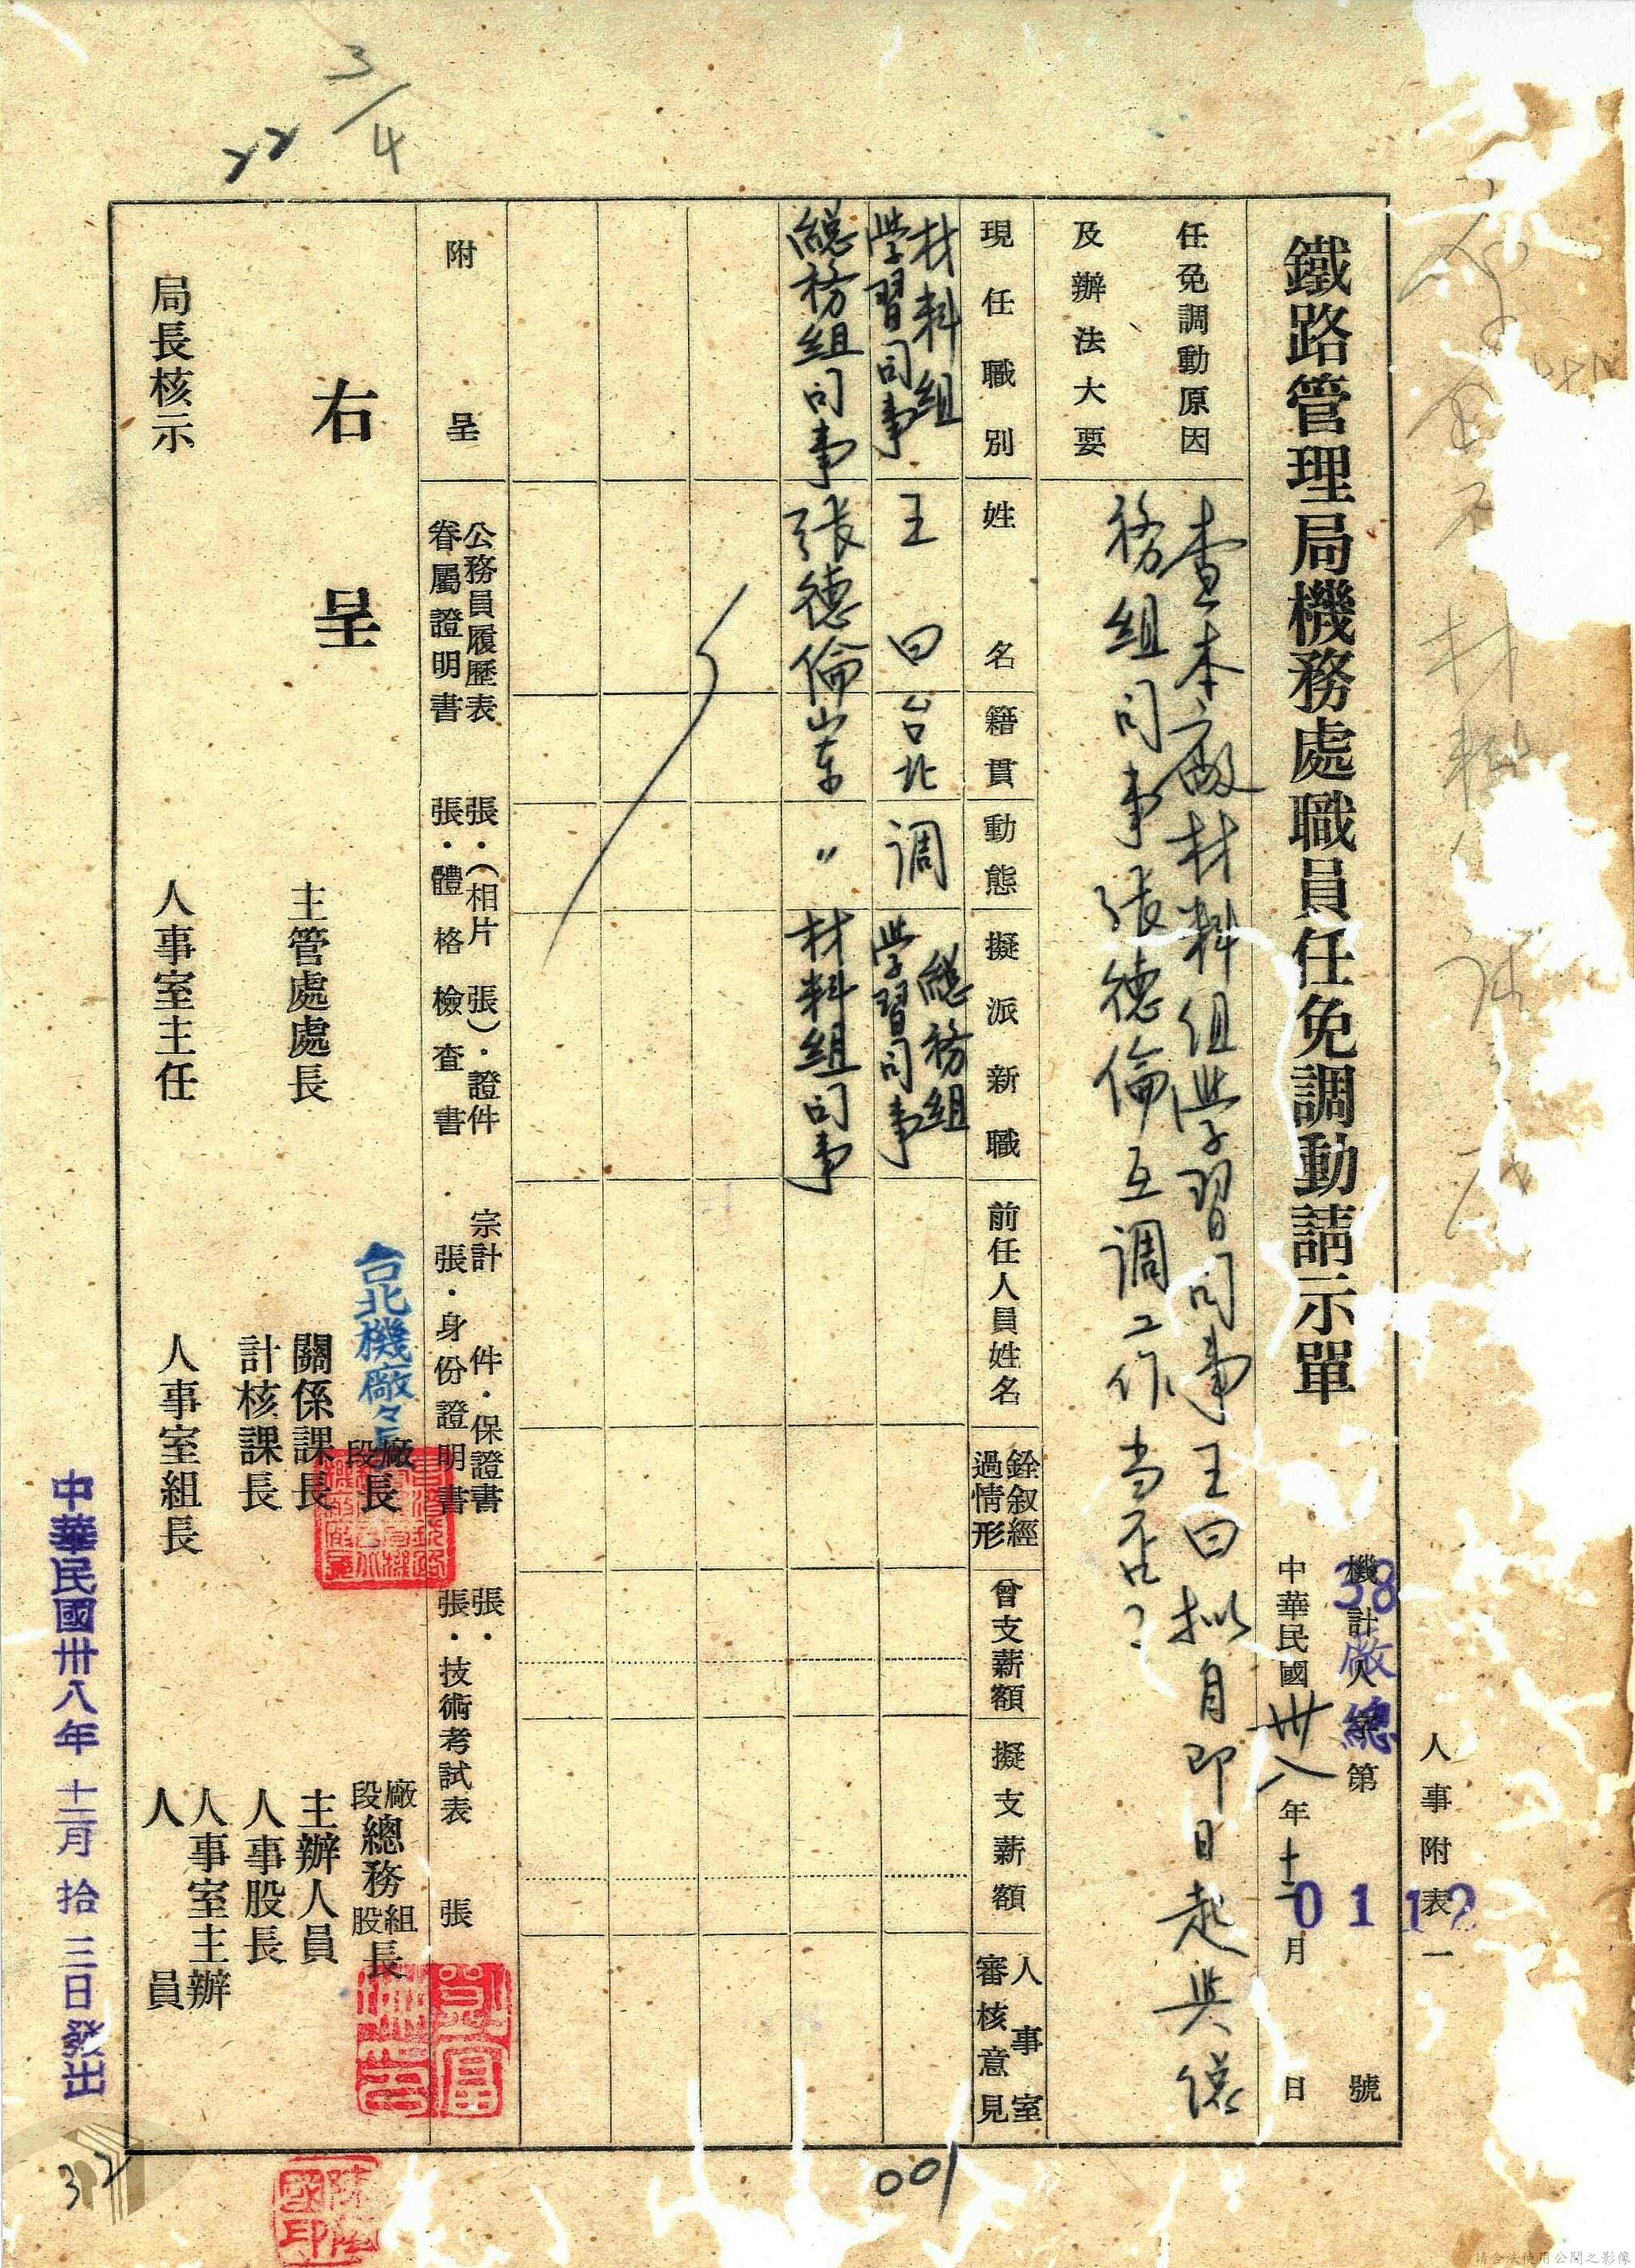 人事附表一
鐵路管理局機務處職員任免調動請示單
機計人字第 號
38廠總
0112
中華民國卅八年十二月 日
任免調動原因
及辦法大要
查本廠材料組學習司事王曰拟自即日起與總
務組司事張德倫互調工作当否?
現任職別
姓名
籍貫
動態
擬派新職
前任人員姓名
銓叙經過情形
曾支薪額
擬支薪額
人事室審核意見
材料組學習司事 王曰 台北 調 總務組學習司事
總務組司事 張德倫 山东 〃 材料組司事
附呈
公務員履歷表 張·(相片 張)·證件 宗計 件·保證書 張·
眷屬證明書 張·體格檢查書 張·身份證明書 張·技術考試表 張
右呈
台北機廠々長
廠段長
廠段總務組股長
主管處處長
關係課長
主辦人員
計核課長
人事股長
局長核示
人事室主任
人事室組長
人事室主辦人員
中華民國卅八年十二月拾三日發出
3/4
001
32
請合法使用公開之影像